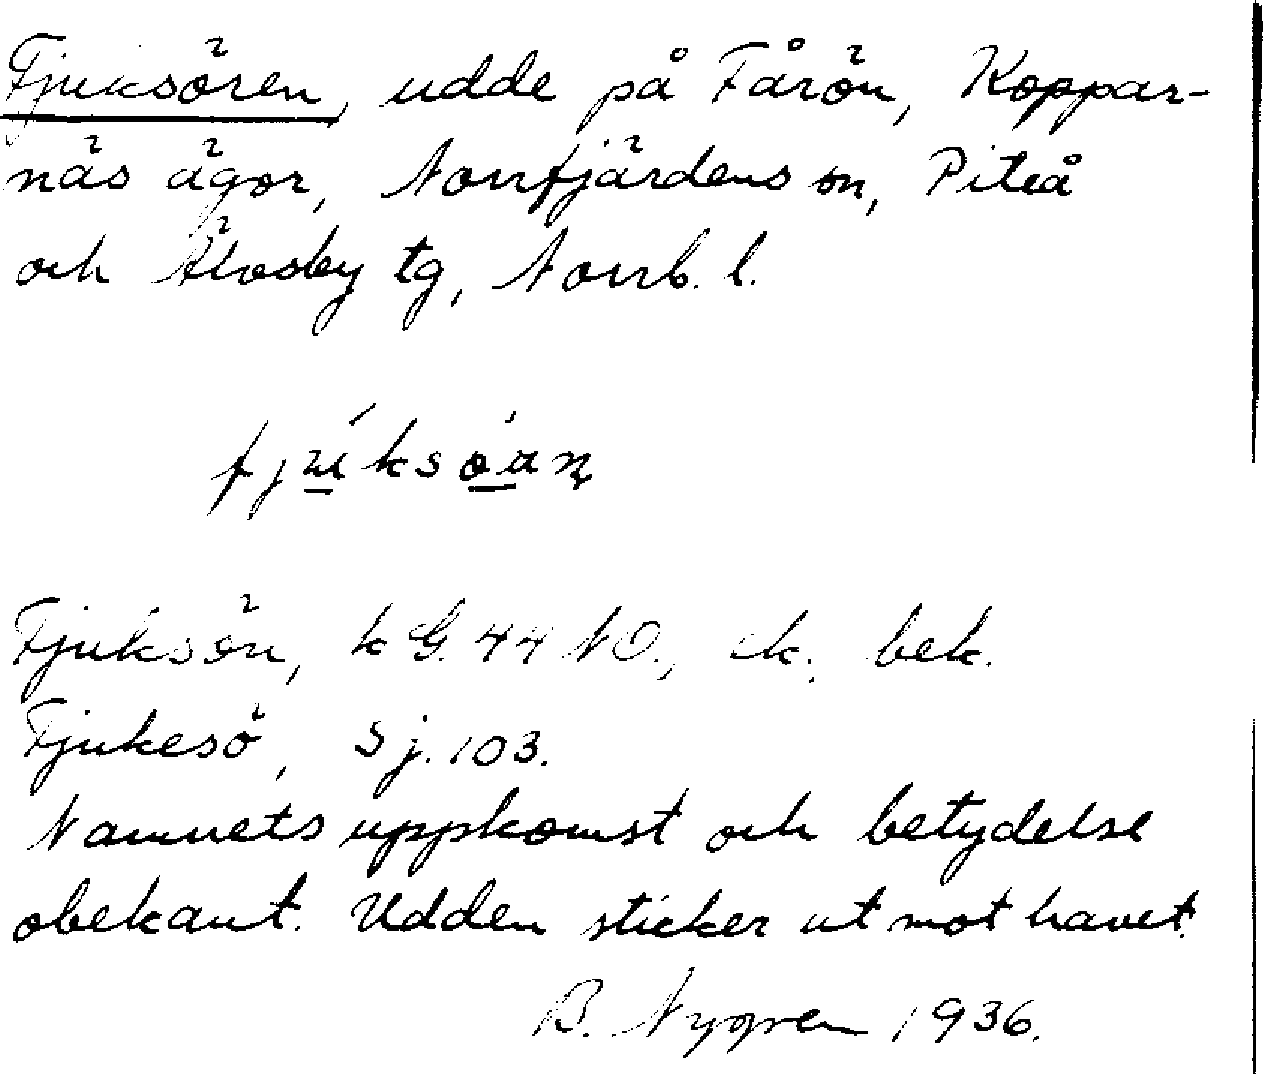 Fjuksören, udde på Fårön, Koppar-
näs ägor, Norrfjärdens sn, Piteå
och Älvsby tg, Norrb. l.
Fjuksön, k G. 44 NO., ek. bek.
Fjukesö, Sj. 103.
Namnets uppkomst och betydelse
obekant. Udden sticker ut mot havet.
B. Nygren 1936.